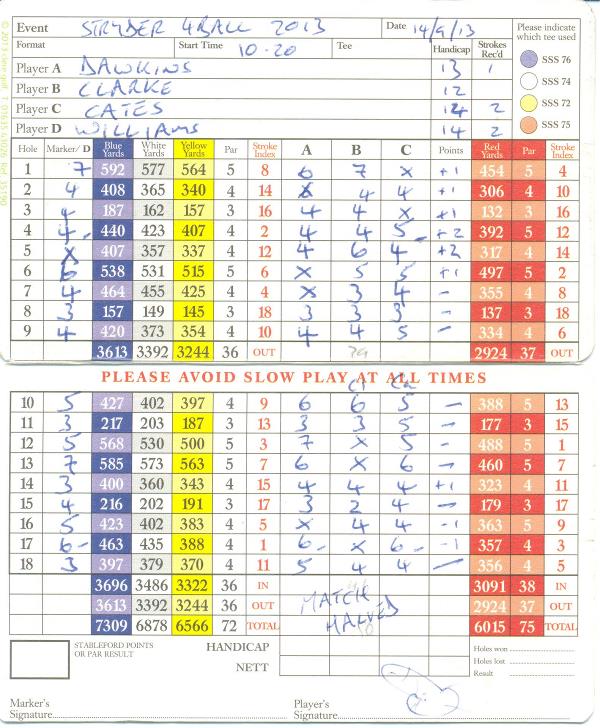 Event STRYDER 4BALL 2013 Date 14/9/13 Please indicate which tee used
Format Start Time 10-20 Tee Handicap Strokes Rec'd
Player A DAWKINS 13 1 SSS 76
Player B CLARKE 12 SSS 74
Player C CATES 14 2 SSS 72
Player D WILLIAMS 14 2 SSS 75
Hole Marker/ D Blue Yards White Yards Yellow Yards Par Stroke Index A B C Points Red Yards Par Stroke Index
1 7 592 577 564 5 8 6 7 x +1 454 5 4
2 4 408 365 340 4 14 x 4 4 +1 306 4 10
3 4 187 162 157 3 16 4 4 x +1 132 3 16
4 4 440 423 407 4 2 4 4 5 +2 392 5 12
5 x 407 357 337 4 12 4 6 4 +2 317 4 14
6 6 538 531 515 5 6 x 5 5 +1 497 5 2
7 4 464 455 425 4 4 x 3 4 - 355 4 8
8 3 157 149 145 3 18 3 3 3 - 137 3 18
9 4 420 373 354 4 10 4 4 5 - 334 4 6
3613 3392 3244 36 OUT 2924 37 OUT
PLEASE AVOID SLOW PLAY AT ALL TIMES
10 5 427 402 397 4 9 6 6 5 - 388 5 13
11 3 217 203 187 3 13 3 3 5 - 177 3 15
12 5 568 530 500 5 3 7 x 5 - 488 5 1
13 7 585 573 563 5 7 6 x 6 - 460 5 7
14 3 400 360 343 4 15 4 4 4 +1 323 4 11
15 4 216 202 191 3 17 3 2 4 - 179 3 17
16 5 423 402 383 4 5 x 4 4 -1 363 5 9
17 6- 463 435 388 4 1 6- x 6- -1 357 4 3
18 3 397 379 370 4 11 5 4 4 - 356 4 5
3696 3486 3322 36 IN 3091 38 IN
3613 3392 3244 36 OUT MATCH 2924 37 OUT
7309 6878 6566 72 TOTAL HALVED 6015 75 TOTAL
STABLEFORD POINTS OR PAR RESULT HANDICAP Holes won
NETT Holes lost
Result
Marker's Signature Player's Signature